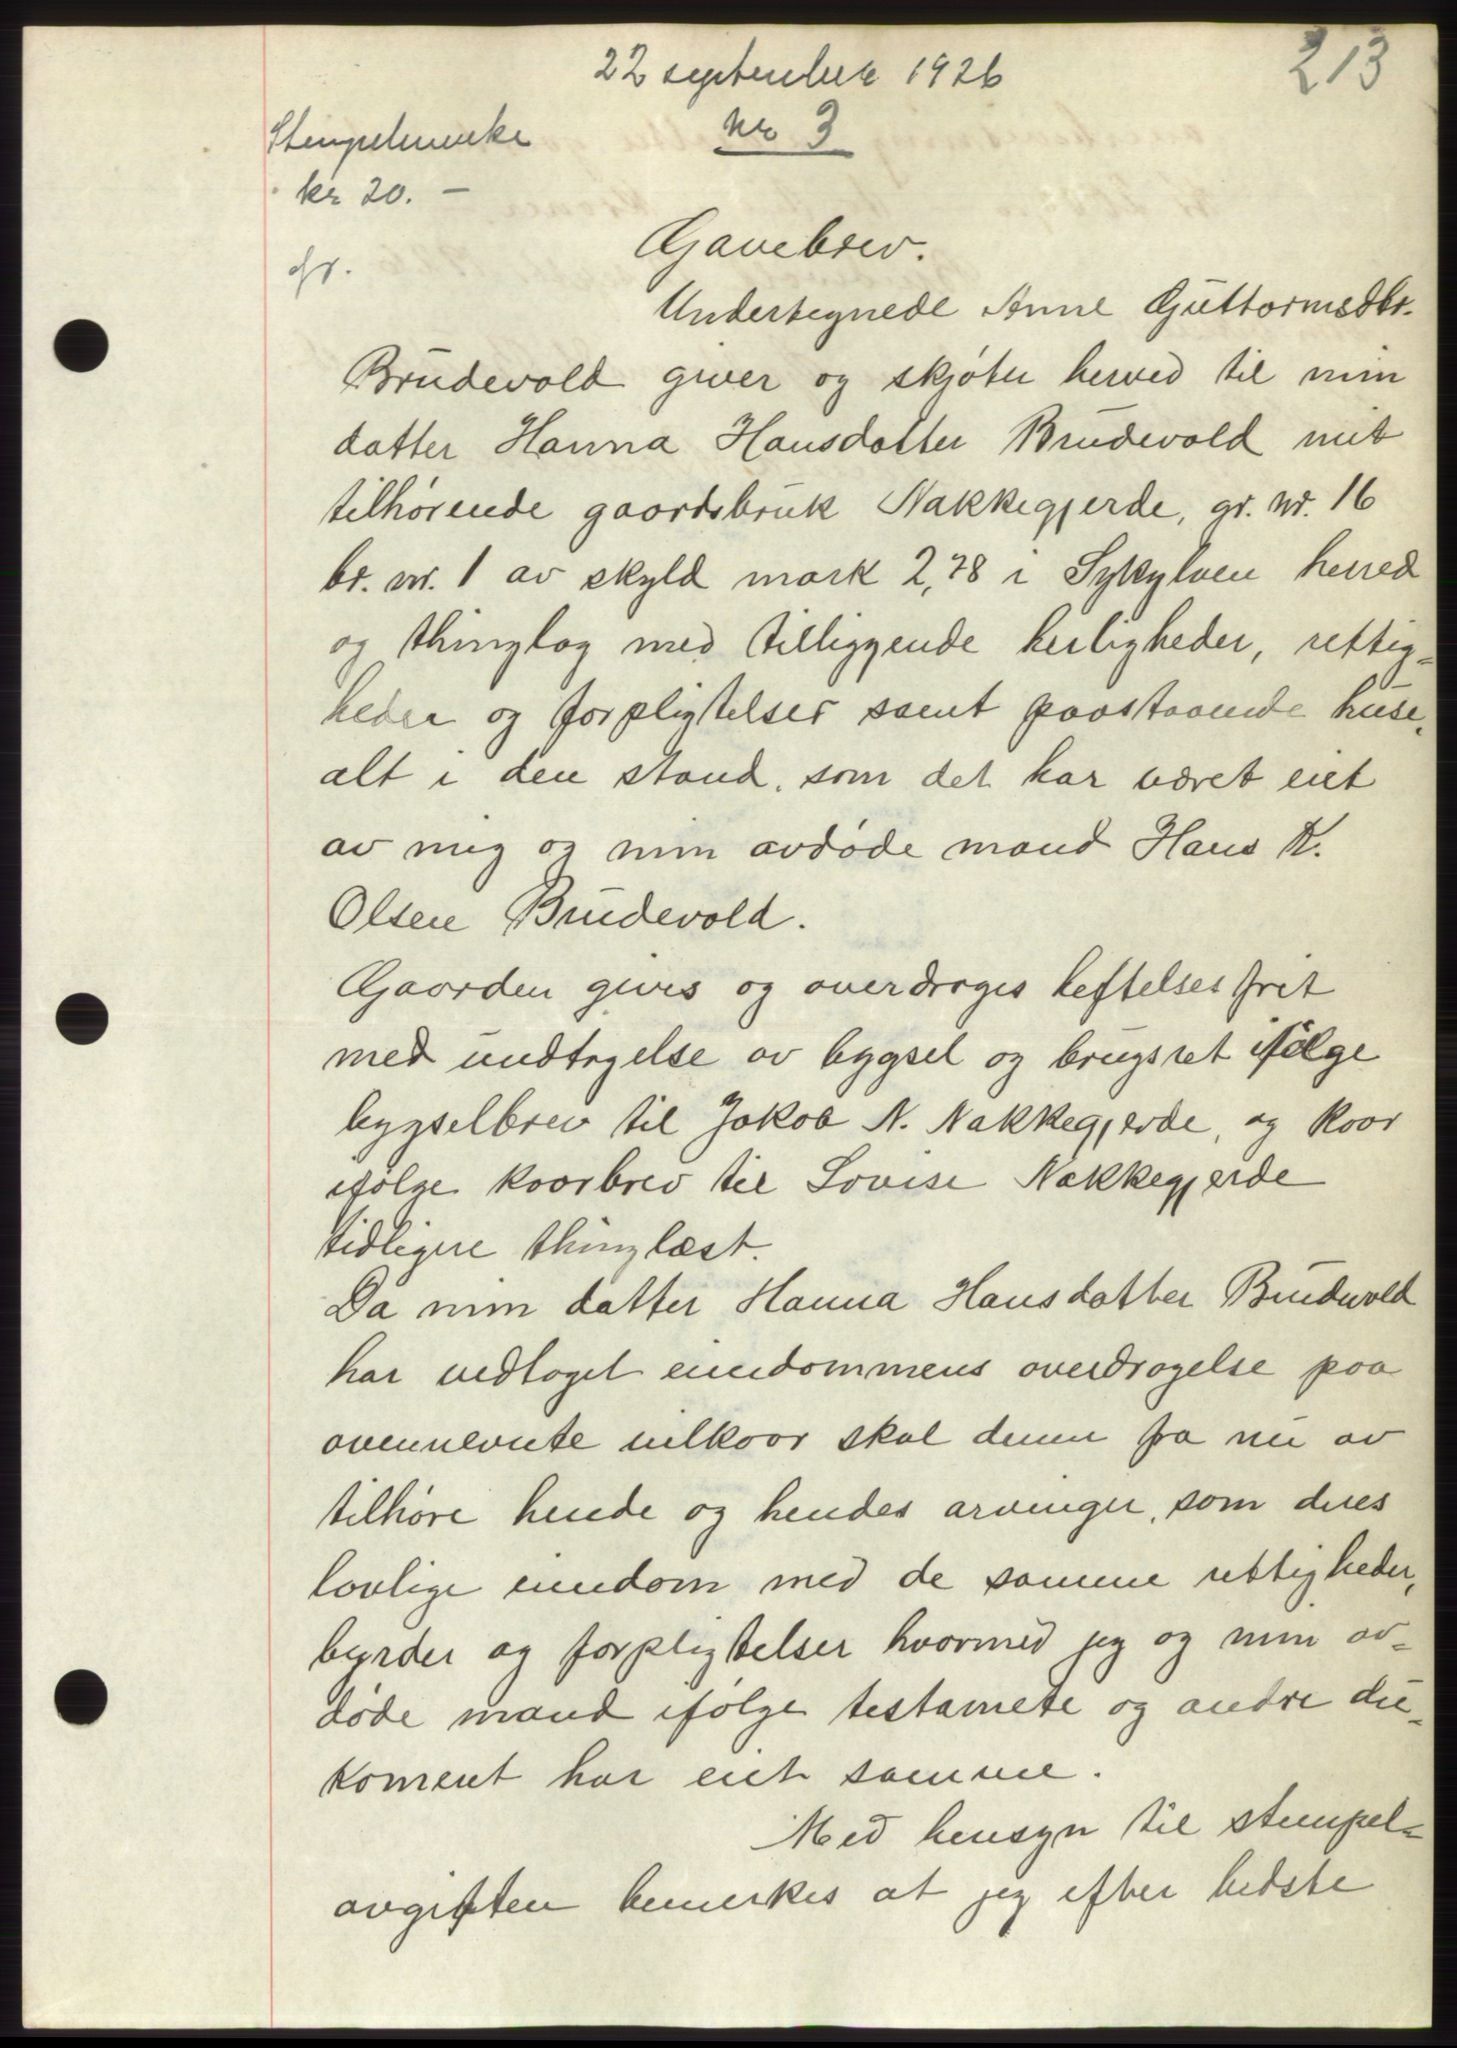 213
22 september 1926
nr 3
Stempelmerke
kr 20. –
Gavebrev.
Undertegnede Anne Guttormsdtr.
Brudevold giver og skjøter herved til min
datter Hanna Hansdatter Brudevold mit
tilhørende gaardsbruk Nakkegjerde, gr. nr. 16
br. nr. 1 av skyld mark 2,78 i Sykylven herred
og thinglag med tilliggende herligheder, rettig=
heder og forpligtelser samt paastaaende huse,
alt i den stand, som det har været eiet
av mig og min avdøde mand Hans K.
Olsen Brudevold.
Gaarden gives og overdrages heftelsesfrit
med undtagelse av bygsel og brugsret ifølge
bygselbrev til Jakob N. Nakkegjerde, og kaar
ifølge kaarbrev til Lovise Nakkegjerde
tidligere thinglæst.
Da min datter Hanna Hansdatter Brudevold
har vedtaget eiendommens overdragelse paa
ovennevnte vilkaar skal denne fra nu av
tilhøre hende og hendes arvinger, som deres
lovlige eiendom med de samme rettigheder,
byrder og forpligtelser hvormed jeg og min av=
døde mand ifølge testamete og andre du=
koment har eiet samme.
Med hensyn til stempel=
avgiften bemerkes at jeg efter bedste